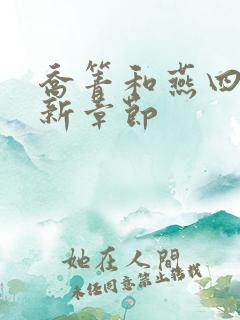 乔箐和燕四
新章节
她在人间
未经同意禁止转载